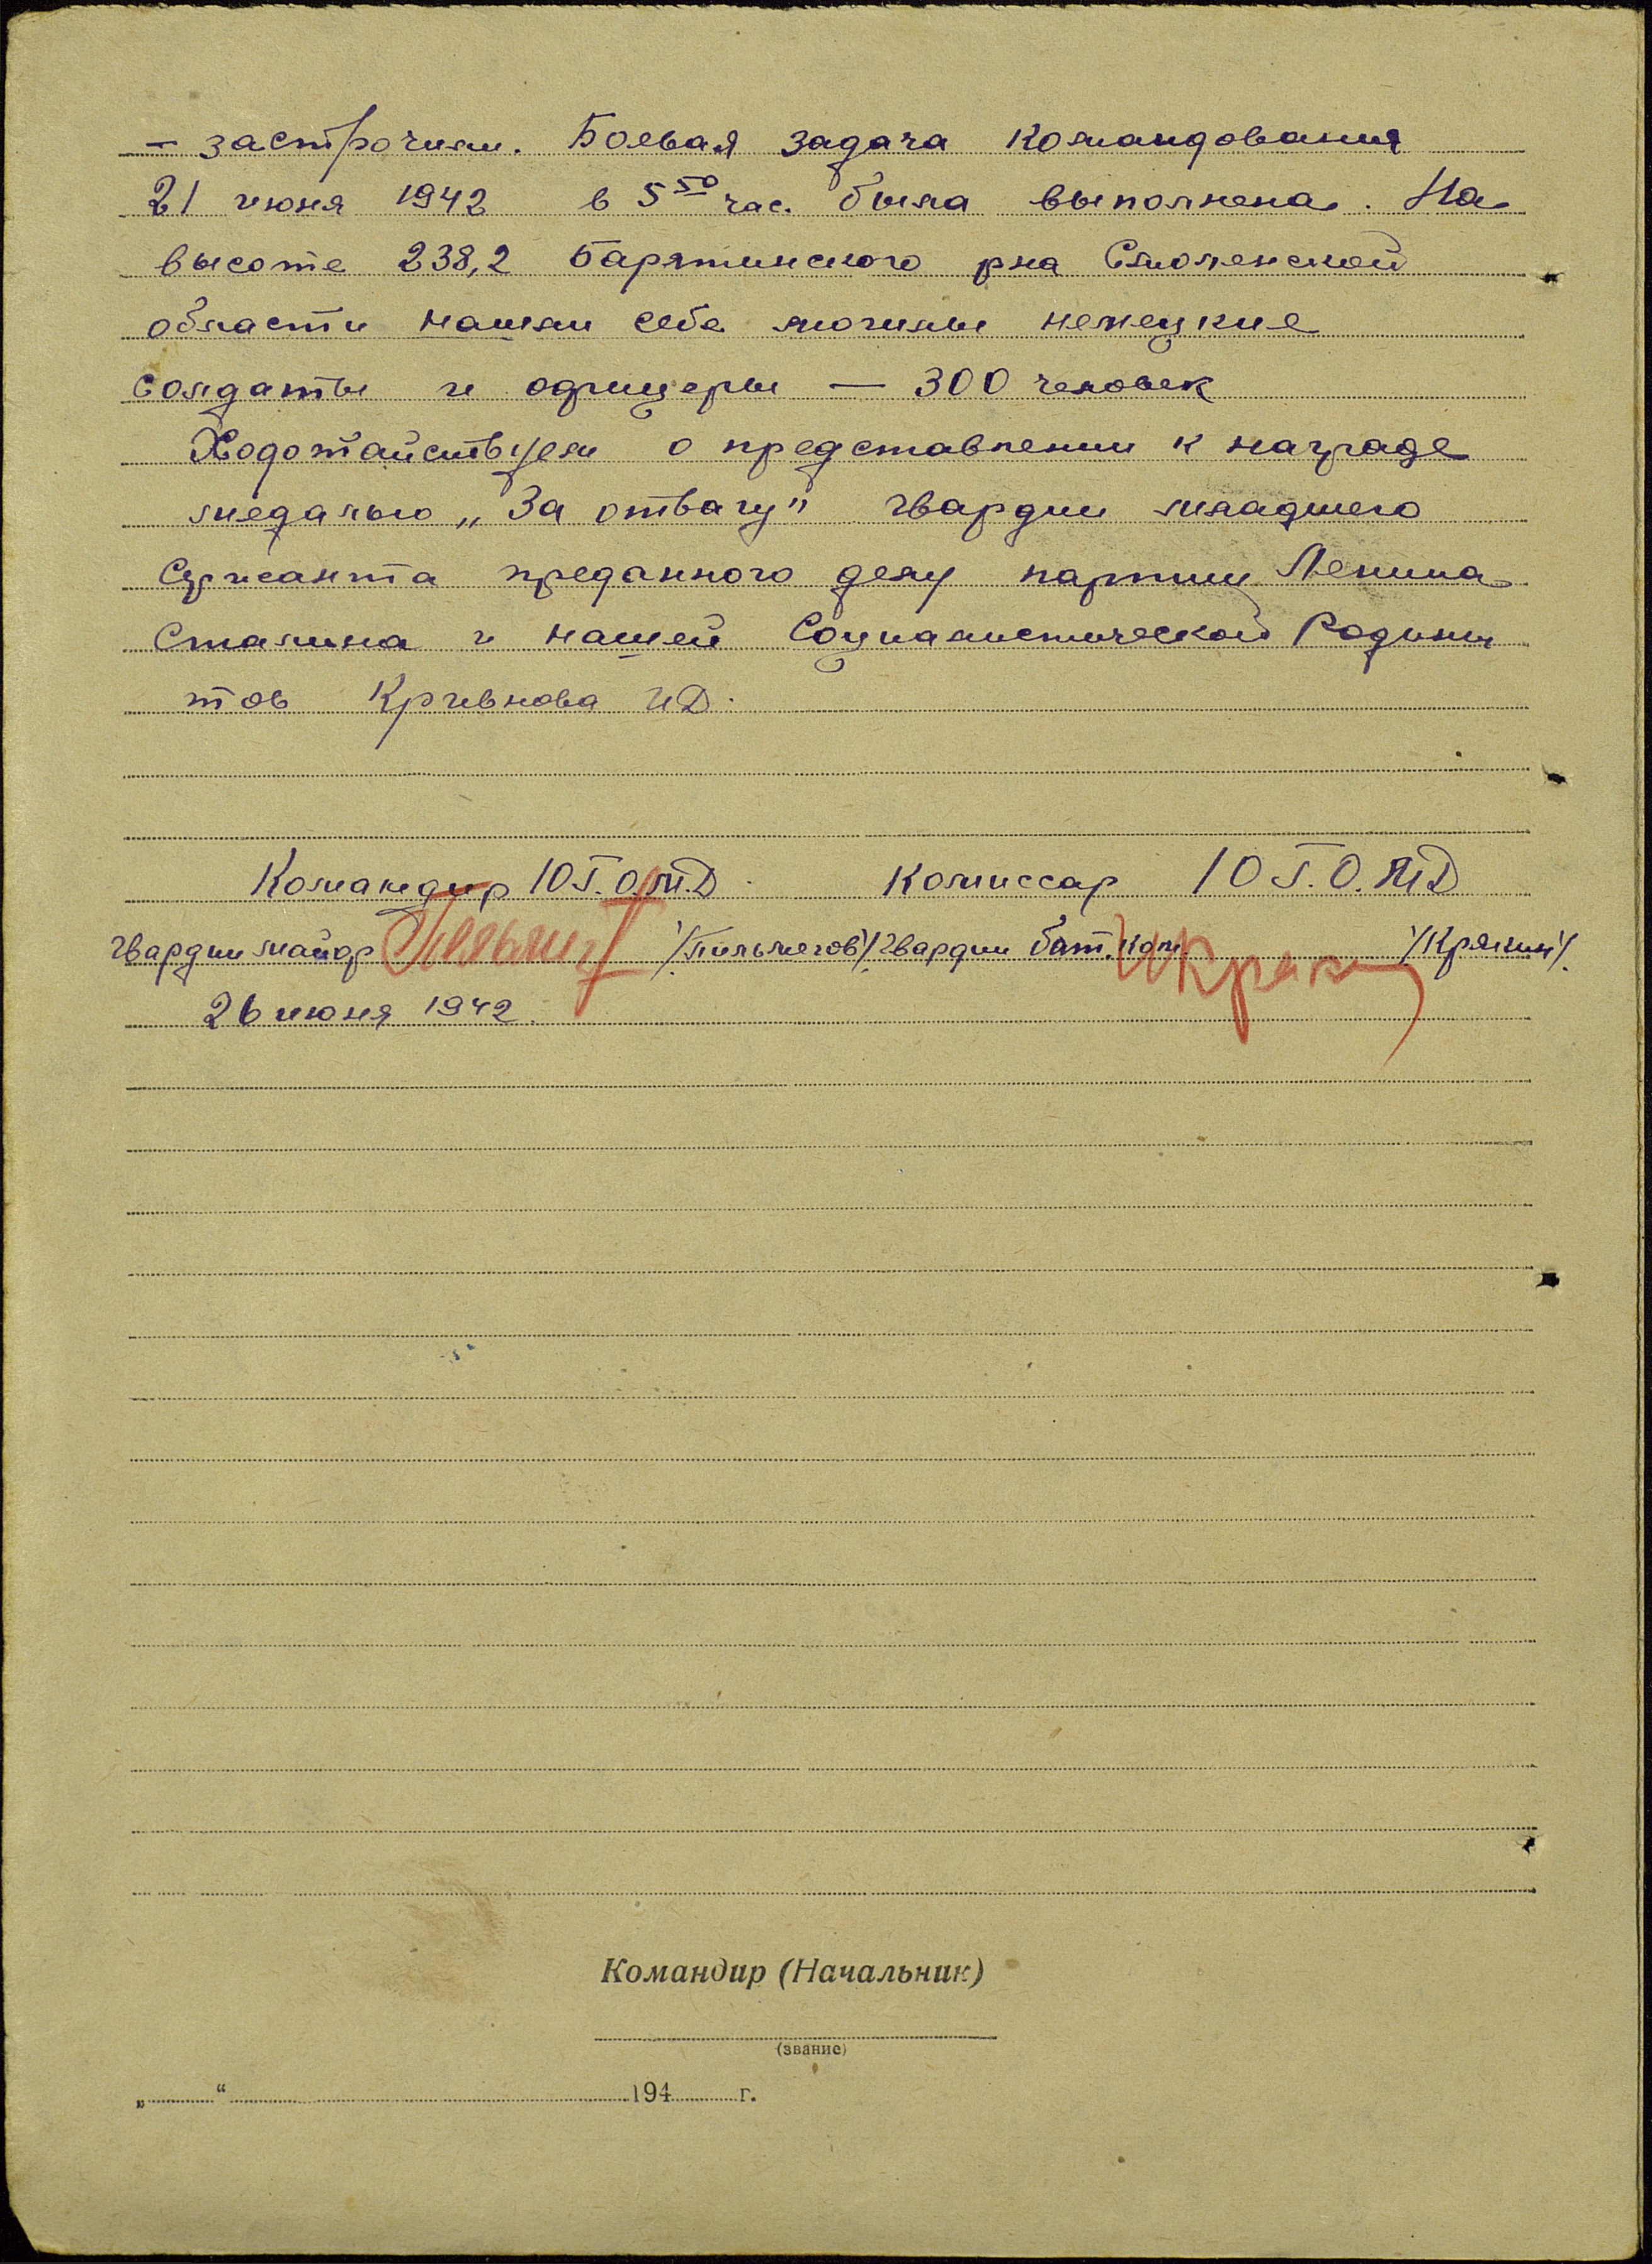 – застрочили. Боевая задача командования
21 июня 1942 в 5 50 час. была выполнена. На
высоте 238,2 Барятинского рна Смоленской
области нашли себе могилы немецкие
солдаты и офицеры — 300 человек
Ходотайствуем о представлении к награде
медалью „За отвагу" гвардии младшего
Сержанта преданного делу партии Ленина
Сталина и нашей Социалистической Родины
тов Кривнова ИД.
Командир 10 Г.О.М.Д. Комиссар 10 Г.О.МД
гвардии майор /Пильмегов/ Гвардии бат. ком /Крякин/.
26 июня 1942.
Командир (Начальник)
(звание)
„ “ 194 г.